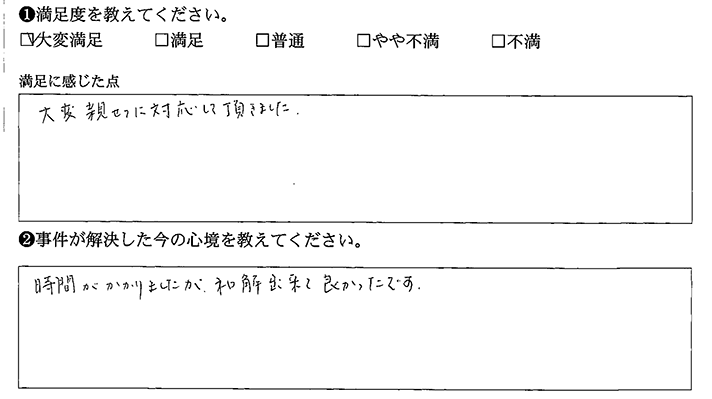 ❶満足度を教えてください。
☑大変満足 □満足 □普通 □やや不満 □不満
満足に感じた点
大変親せつに対応して頂きました.
❷事件が解決した今の心境を教えてください。
時間がかかりましたが、和解出来て良かったです.